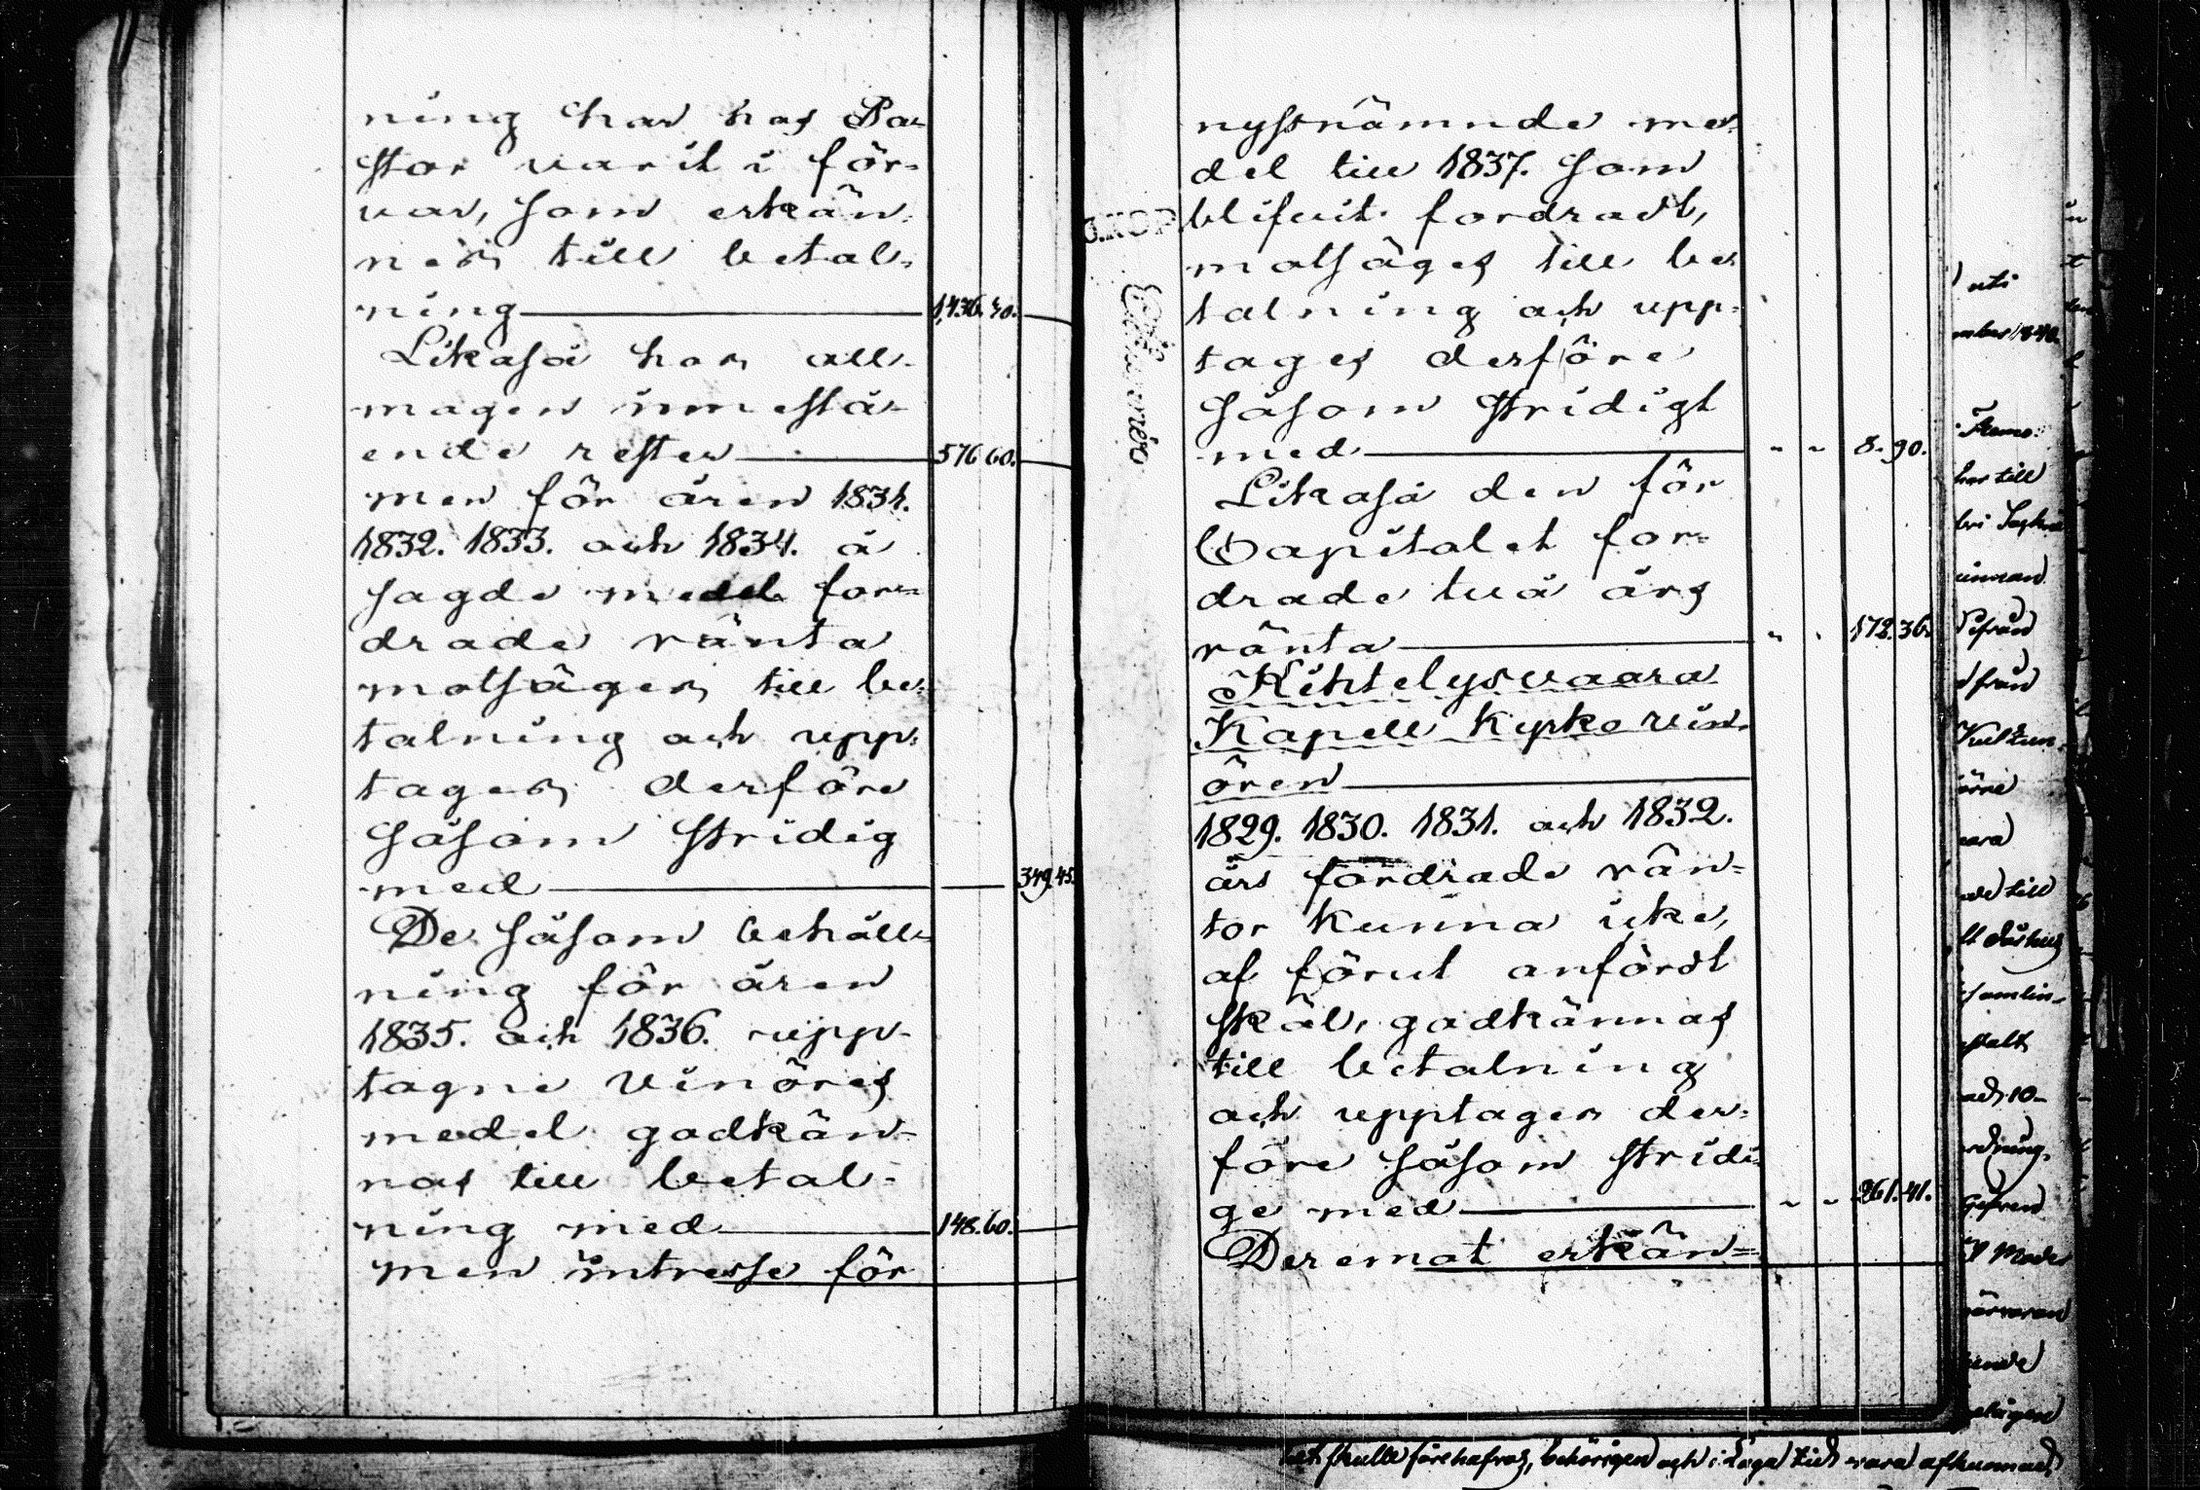 ning har hos Pa-
stor varit i för-
var, som erkän-
nes till betal-
ning 1,436. 40.
Likaså hos all-
mogen innestå-
ende rester 576 60.
men för åren 1831.
1832. 1833. och 1834. å
sagde medel for-
drade ränta
motsäges till be-
talning och upp-
tages derföre
såsom stridig
med 349. 45.
De såsom behåll-
ning för åren
1835. och 1836. upp-
tagne vinöres
medel godkän-
nas till betal-
ning med 148. 60.
men intresse för
nyssnämnde me-
del till 1837. som
blifvit fordradt,
motsäges till be-
talning och upp-
tages derföre
såsom stridigt
med " " 8. 90.
Likaså den för
Capitalet for-
drade två års
ränta " " 172. 36.
Kihtelysvaara
Kapell Kyrko vin-
ören
1829. 1830. 1831. och 1832.
års fordrade rän-
tor kunna icke,
af förut anfördt
skäl, godkännas
till betalning
och upptages der-
före såsom stridi-
ge med " " 261. 41.
Deremot erkän-
uti
har till
Kapell
ade till
samlin-
stalt
ordning.
närvaran
skulle förehafvas, behörigen och i laga tid vara afkunnad,